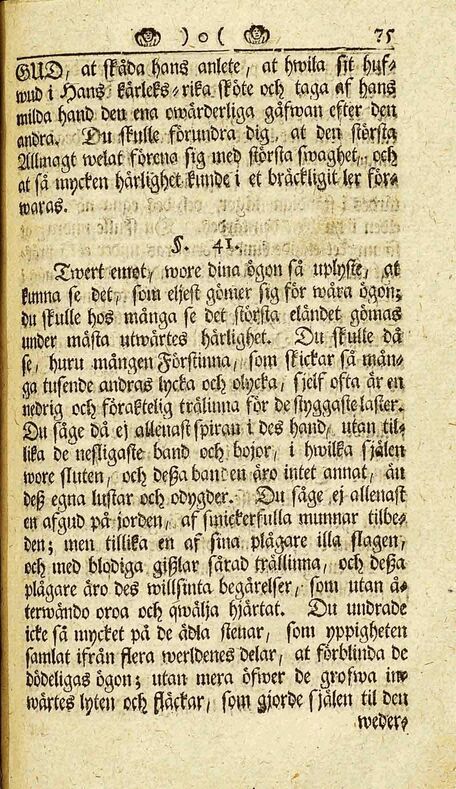 ) o ( 75
GUD, at skåda hans anlete, at hwila sit huf-
wud i Hans kärleks-rika sköte och taga af hans
milda hand den ena owärderliga gåfwan efter den
andra. Du skulle förundra dig, at den största
Allmagt welat förena sig med största swaghet, och
at så mycken härlighet kunde i et bräckligit ler för-
waras.
§. 41.
Twert emot, wore dina ögon så uplyste, at
kunna se det, som eljest gömer sig för wåra ögon;
du skulle hos många se det största eländet gömas
under mästa utwärtes härlighet. Du skulle då
se, huru mången Förstinna, som skickar så mån-
ga tusende andras lycka och olycka, sjelf ofta är en
nedrig och föraktelig trälinna för de styggaste laster.
Du såge då ej allenast spiran i des hand, utan til-
lika de nesligaste band och bojor, i hwilka själen
wore sluten, och deßa banden äro intet annat, än
deß egna lustar och odygder. Du såge ej allenast
en afgud på jorden, af smickerfulla munnar tilbe-
den; men tillika en af sina plågare illa slagen,
och med blodiga gißlar sårad trällinna, och deßa
plågare äro des willsinta begärelser, som utan å-
terwändo oroa och qwälja hjärtat. Du undrade
icke så mycket på de ädla stenar, som yppigheten
samlat ifrån flera werldenes delar, at förblinda de
dödeligas ögon; utan mera öfwer de grofwa in-
wärtes lyten och fläckar, som gjorde själen til den
weder-